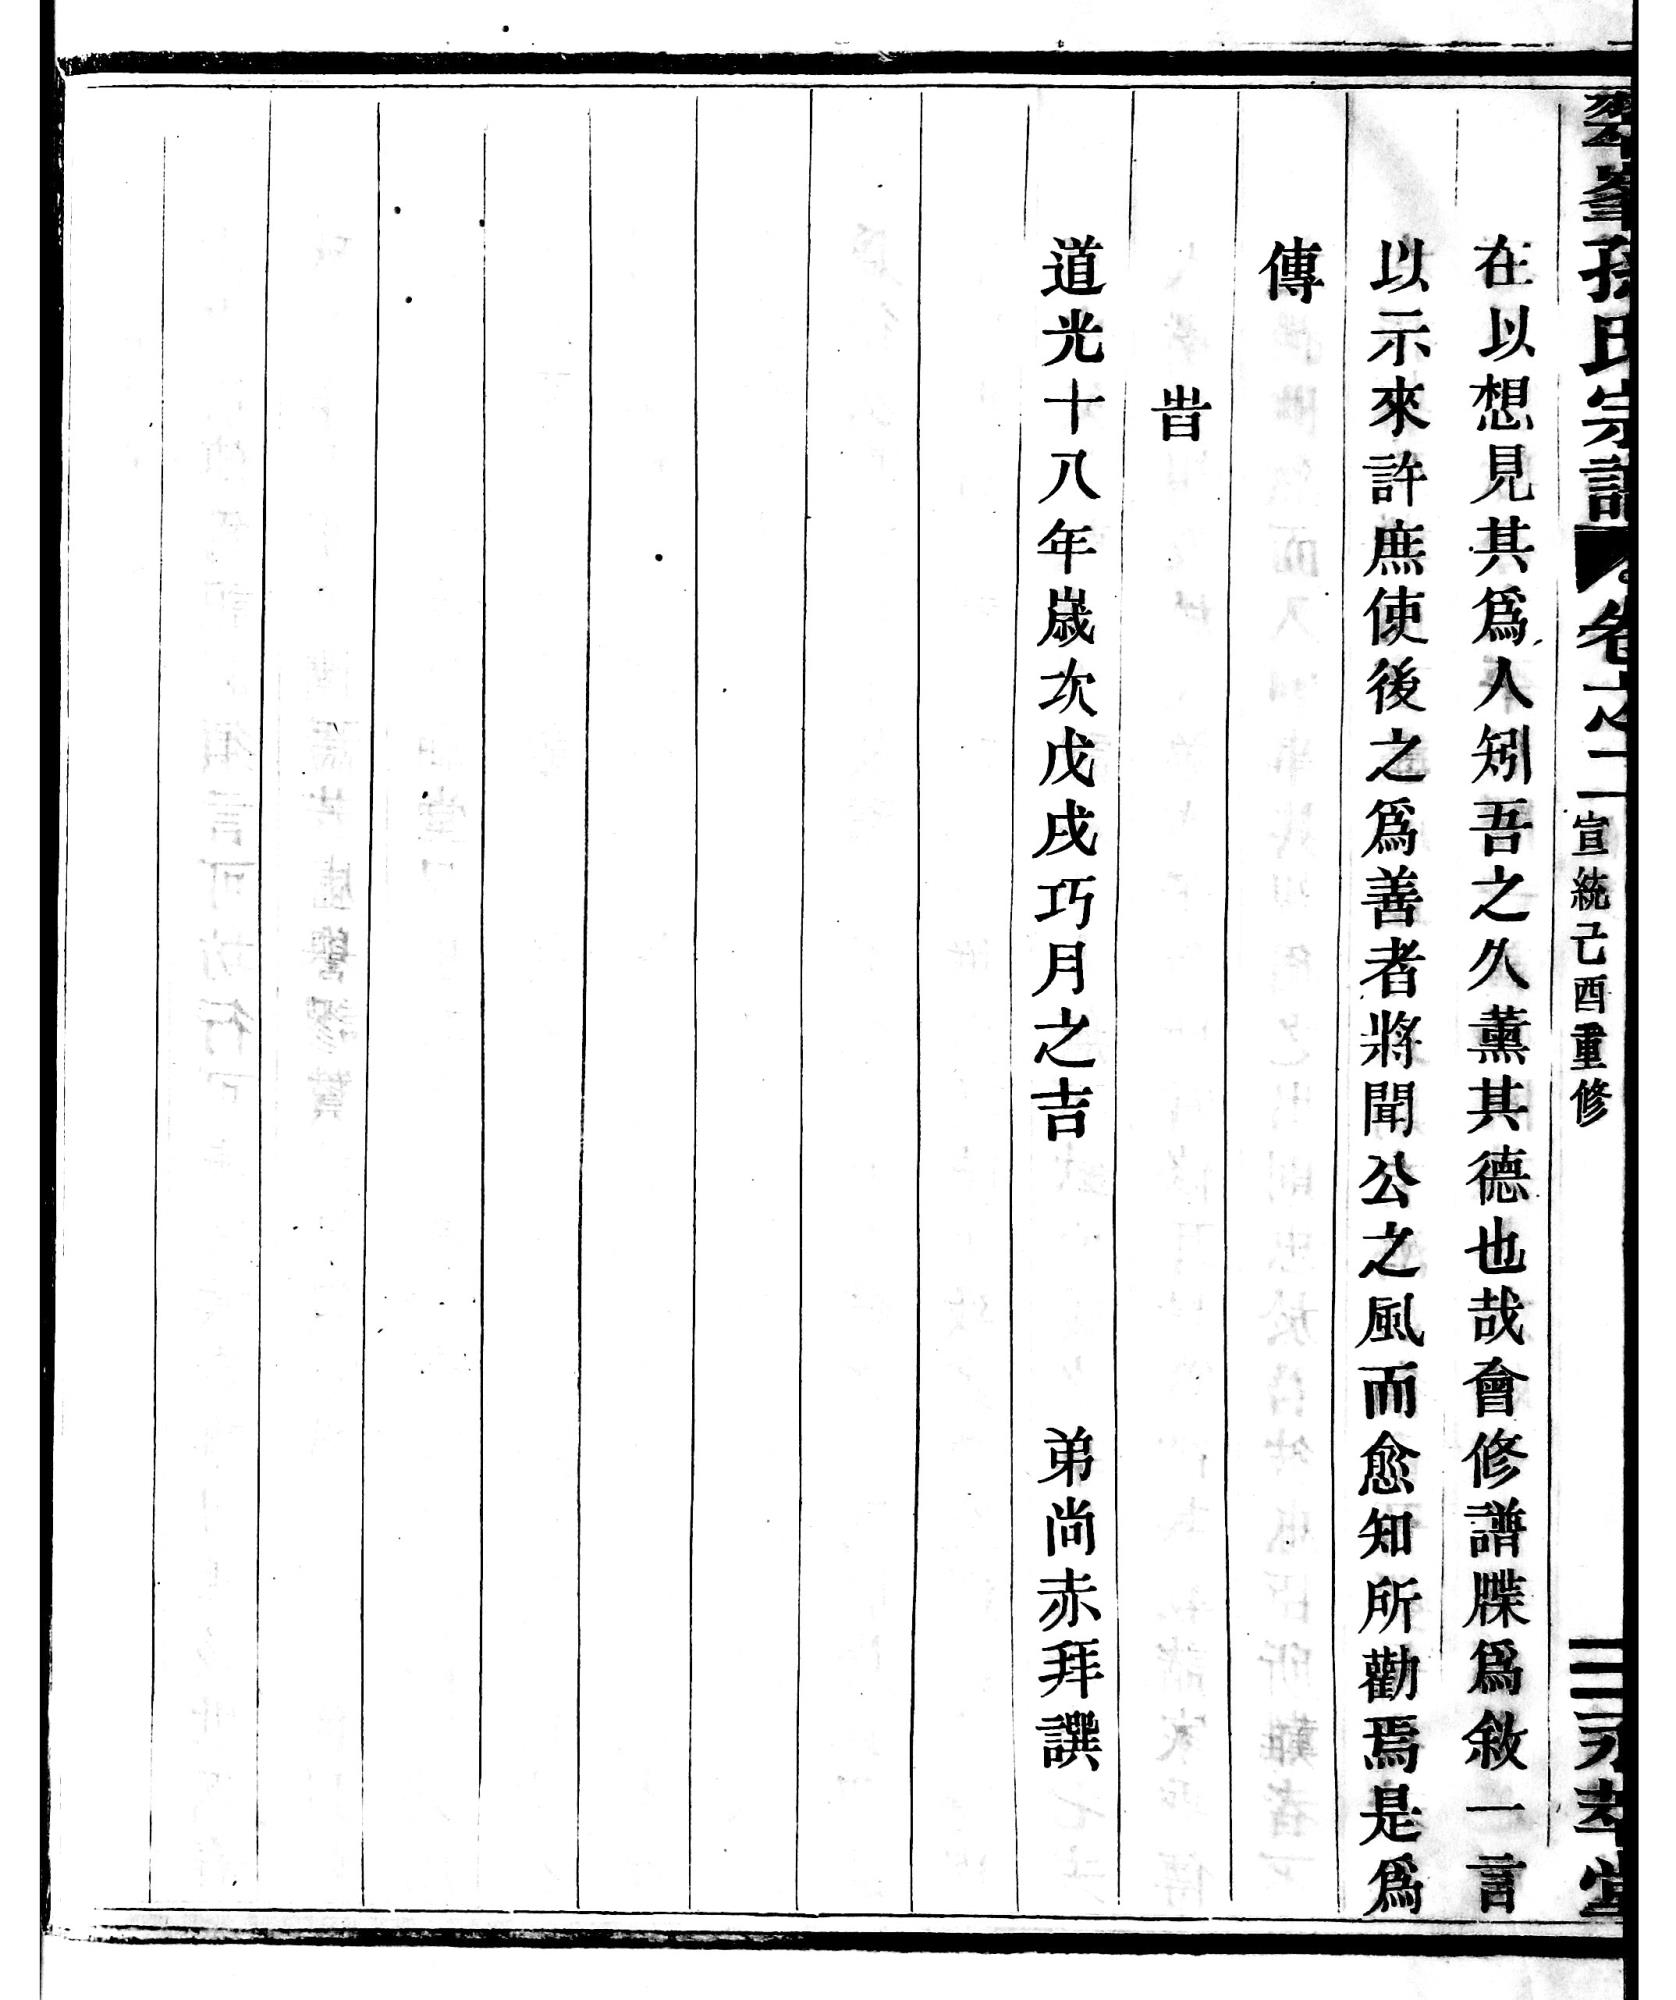 孫氏宗譜 卷之二 宣統己酉重修 三 永莘堂
在以想見其爲人矧吾之久薰其德也哉會修譜牒爲敘一言
以示來許庶使後之爲善者將聞公之風而愈知所勸焉是爲
傳
旹
道光十八年歲次戊戌巧月之吉 弟尚赤拜譔